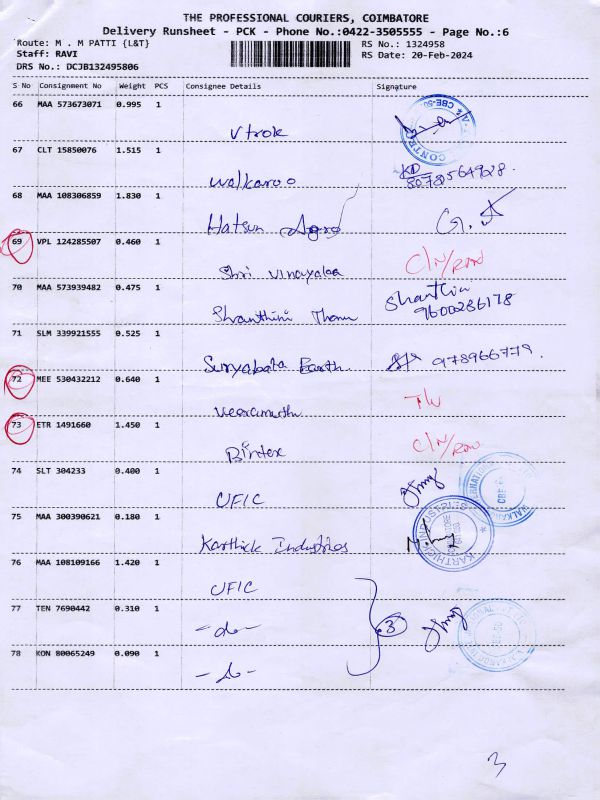 THE PROFESSIONAL COURIERS, COIMBATORE
Delivery Runsheet - PCK - Phone No.:0422-3505555 - Page No.:6
Route: M . M PATTI {L&T} RS No.: 1324958
Staff: RAVI RS Date: 20-Feb-2024
DRS No.: DCJB132495806
S No Consignment No Weight PCS Consignee Details Signature
66 MAA 573673071 0.995 1
Vtrok
67 CLT 15850076 1.515 1
Walkaroo
68 MAA 108306859 1.830 1
Hatsun Agro G.
69 VPL 124285507 0.460 1
Shri Vinayaka
70 MAA 573939482 0.475 1
Shanthini 9600286178
71 SLM 339921555 0.525 1
Earth 978966779.
72 MEE 530432212 0.640 1
73 ETR 1491660 1.450 1
Bintex
74 SLT 304233 0.400 1
UFIC
75 MAA 300390621 0.180 1
Karthick Industries
76 MAA 108109166 1.420 1
UFIC
77 TEN 7690442 0.310 1
-do- 3
78 KON 80065249 0.090 1
3